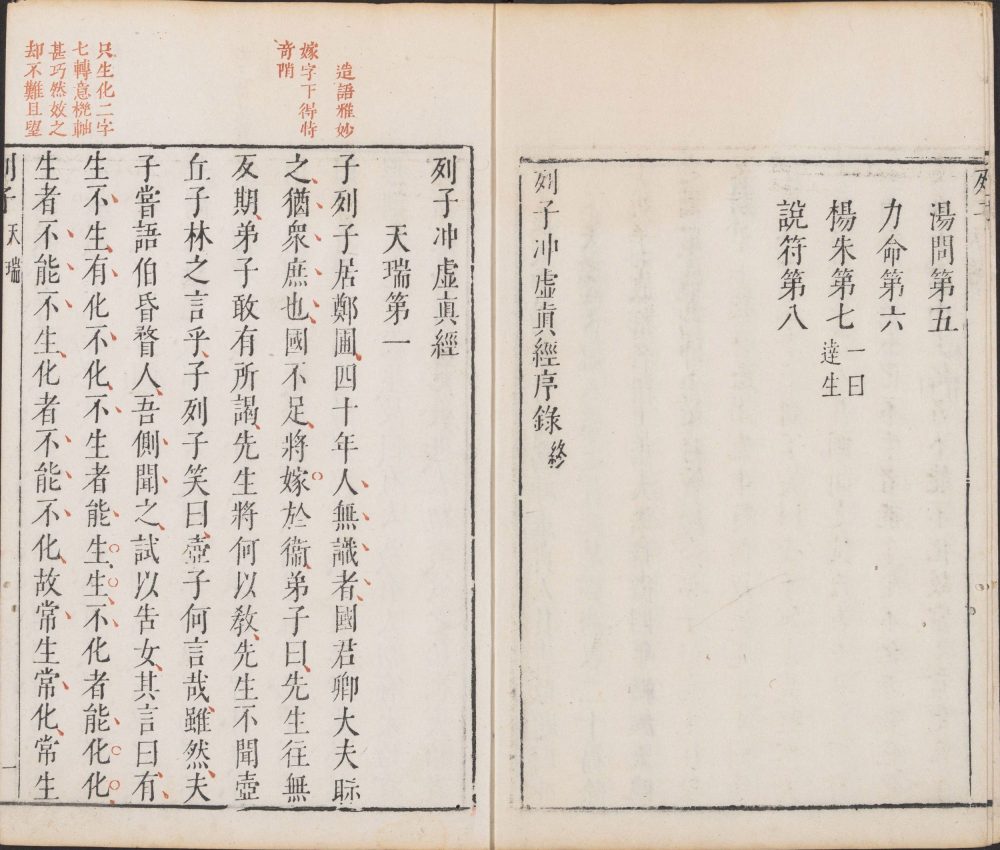 湯問第五
力命第六
楊朱第七 一曰達生
說符第八
列子冲虛眞經序錄 終
造語雅妙
嫁字下得特
奇陗
只生化二字
七轉意機軸
甚巧然效之
却不難且望
列子冲虛眞經
天瑞第一
子列子居鄭圃四十年人無識者國君卿大夫眎
之猶衆庶也國不足將嫁於衞弟子曰先生往無
反期弟子敢有所謁先生將何以敎先生不聞壺
丘子林之言乎子列子笑曰壺子何言哉雖然夫
子嘗語伯昏瞀人吾側聞之試以告女其言曰有
生不生有化不化不生者能生生不化者能化化
生者不能不生化者不能不化故常生常化常生
列子 天瑞 一